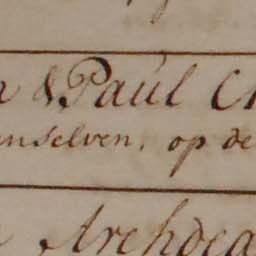 & Paul
enselven, op de
Archdea